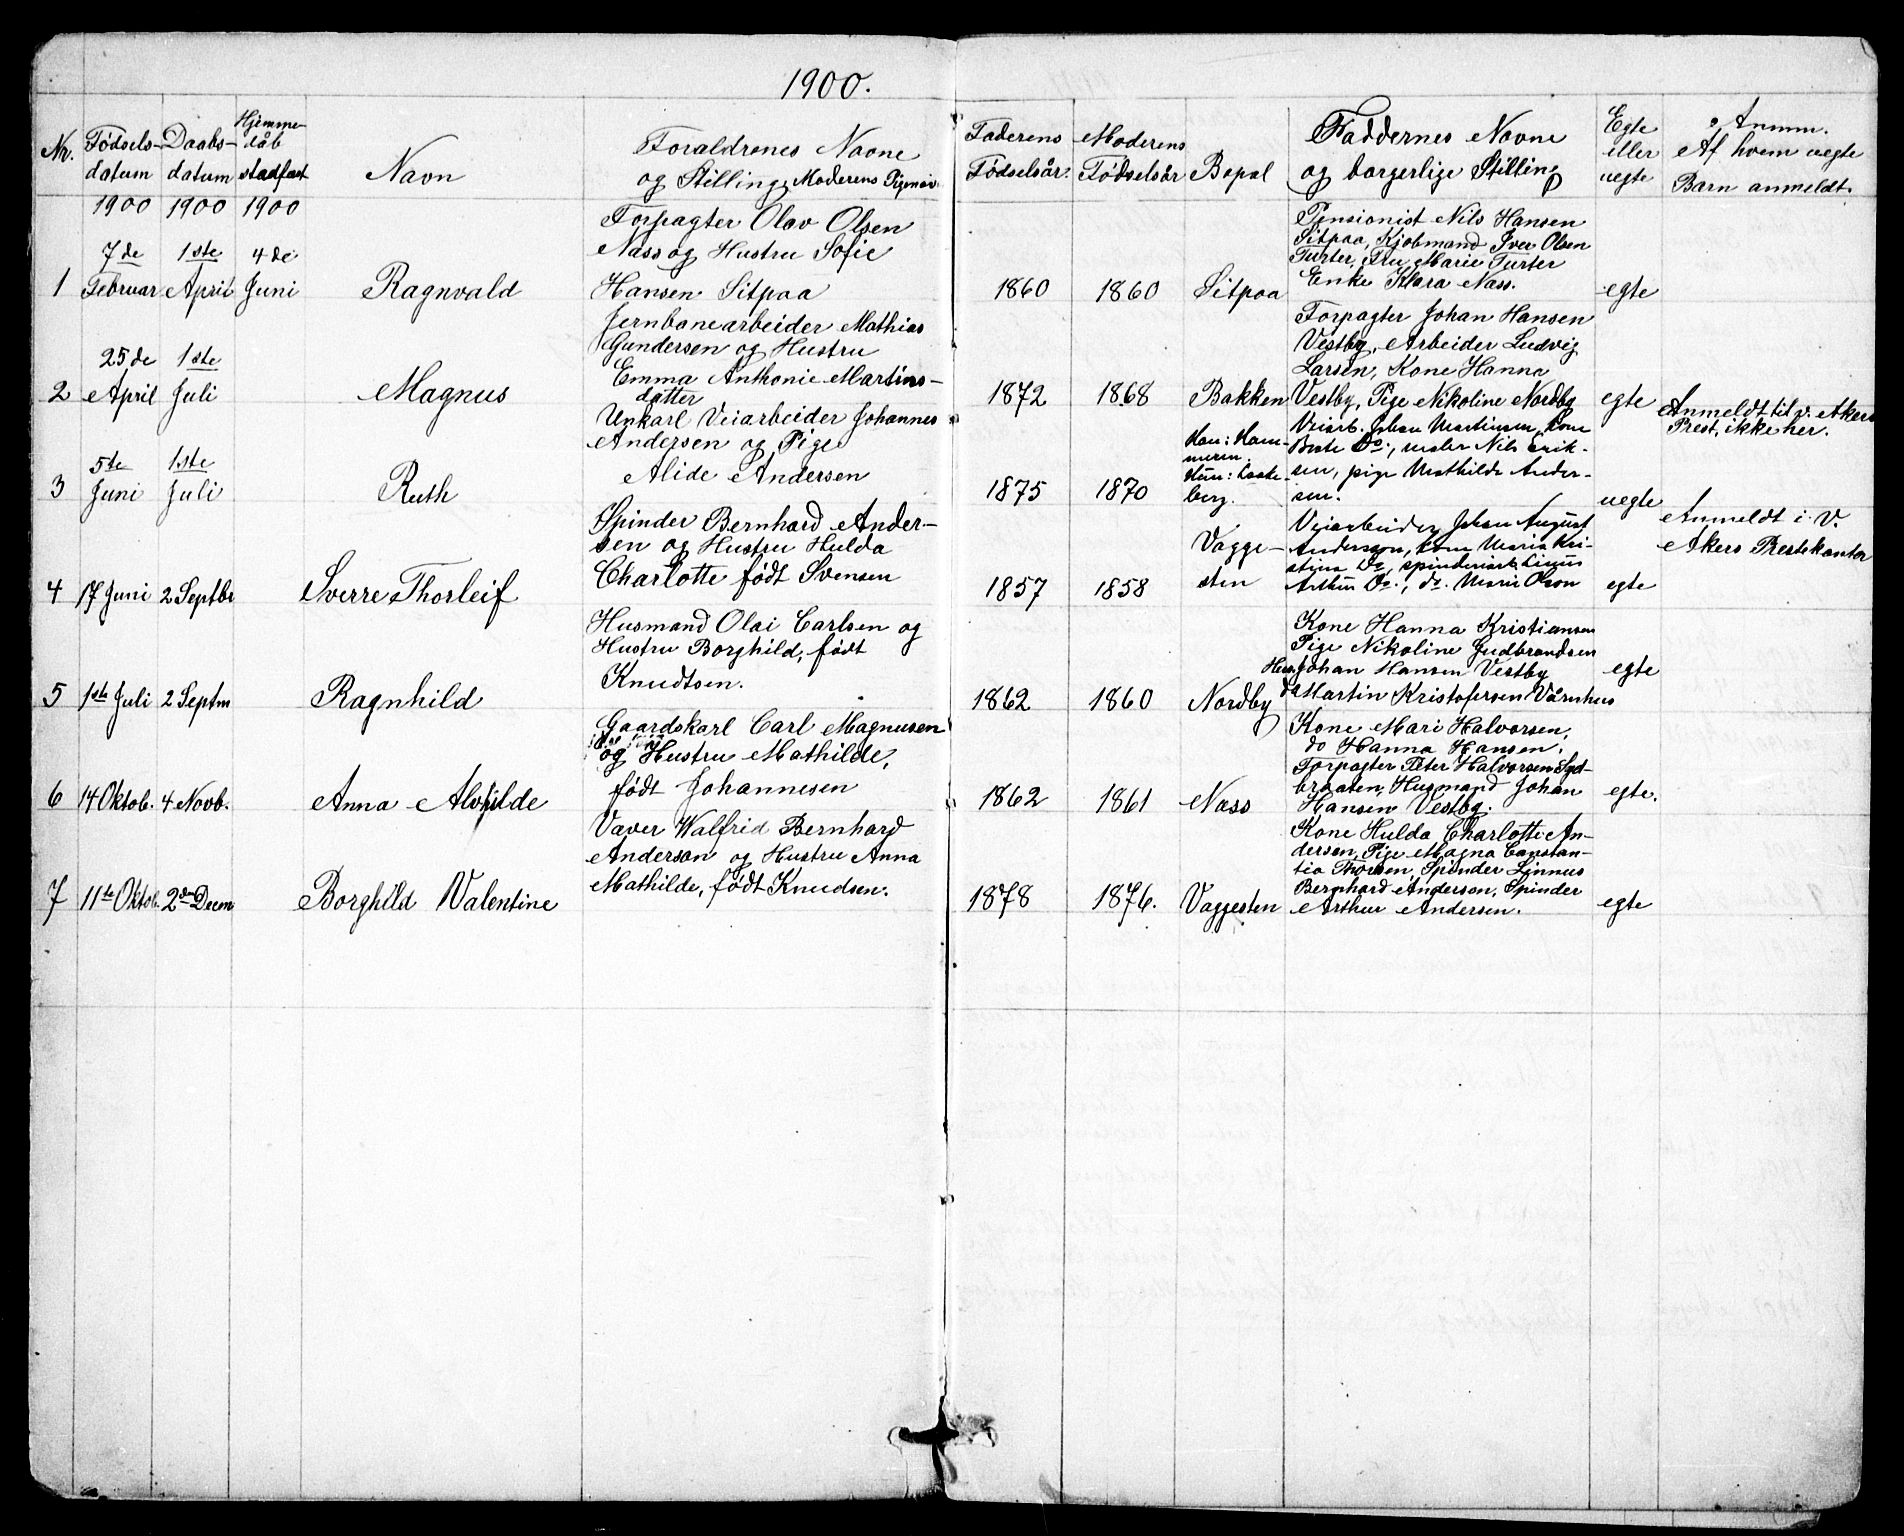 1900.
Nr. Fødsels- datum Daabs- datum Hjemme- dåb stadfæst Navn Forældrenes Navne
og Stilling, Moderens Pigenavn
Faderens Fødselsår. Moderens Fødselsår Bopæl Faddernes Navne
og borgerlige Stilling
Egte eller uegte
Anmm.
Af hvem uegte
Barn anmeldt.
1900 1900 1900
1 7de Februar 1ste April 4de Juni Ragnvald
Forpagter Olav Olsen
Næss og Hustru Sofie
Hansen Sitpaa
1860 1860 Sitpaa
Pensionist Nils Hansen
Sitpaa, Kjøbmand Iver Olsen
Turter, Fru Marie Turter
Enke Klara Næss.
egte
2 25de April 1ste Juli Magnus
Jernbanearbeider Mathias
Gundersen og Hustru
Emma Anthonie Martins-
datter
1872 1868 Bakken
Forpagter Johan Hansen
Vestby, Arbeider Ludvig
Larsen, Kone Hanna
Vestby, Pige Nikoline Nordby
egte
Anmeldt til v. Akers
Prest, ikke her.
3 5te Juni 1ste Juli Ruth
Unkarl Veiarbeider Johannes
Andersen og Pige
Alide Andersen
1875 1870
Han: Ham-
meren.
Hun:
berg.
Veiarb. Johan Martinsen, Kone
Beate Do:, maler Nils Erik-
sen, pige Mathilde Ander-
sen.
uegte
Anmeldt i V.
Akers Prestekontor
4 17 Juni 2 Septbr Sverre Thorleif
Spinder Bernhard Ander-
sen og Hustru Hulda
Charlotte født Svensen
1857 1858
Vagge-
sten
Veiarbeider Johan August
Andersson, kone Maria Kri-
stina Do, spinderiarb. Linus
Arthur Do., do. Maria Olson
egte
5 1ste Juli 2 Septm Ragnhild
Husmand Olai Carlsen og
Hustru Borghild, født
Knudtsen.
1862 1860 Nordby
Kone Hanna Kristiansen
Pige Nikoline Gudbrandsen
Husm. Johan Hansen Vestby
do Martin Kristofersen Vårnhus
egte
6 14 Oktob. 4 Novb. Anna Alvhilde
Gaardskarl Carl Magnusen
og Hustru Mathilde,
født Johannesen
1862 1861 Næss
Kone Mari Halvorsen,
do Hanna Hansen,
Forpagter Peter Halvorsen Syd-
braaten, Husmand Johan
Hansen Vestby.
egte.
7 11te Oktob. 2den Decm Borghild Valentine
Væver Walfrid Bernhard
Anderson og Hustru Anna
Mathilde, født Knudsen.
1878 1876. Vaggesten
Kone Hulda Charlotte An-
dersen, Pige Magna Constan-
tia Thorsen, Spinder Linnus
Bernhard Anderson, Spinder
Arthur Andersen.
egte